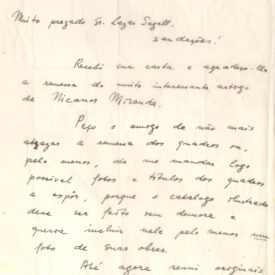 Muito prezado Sr. Lazar Segall.
saudações!
Recebi sua carta e agradeço-lhe
a remessa do muito interessante artigo
de Nicanor Miranda.
Peço o amigo de não mais
a remessa dos quadros ou,
pelo menos, de me mandar logo
possivel fotos e titulos dos quadros
a expôr, porque o catalogo ilustrado
deve ser feito sem demora e
queria incluir nele pelo menos uma
foto de suas obras.
Até agora reuni originais